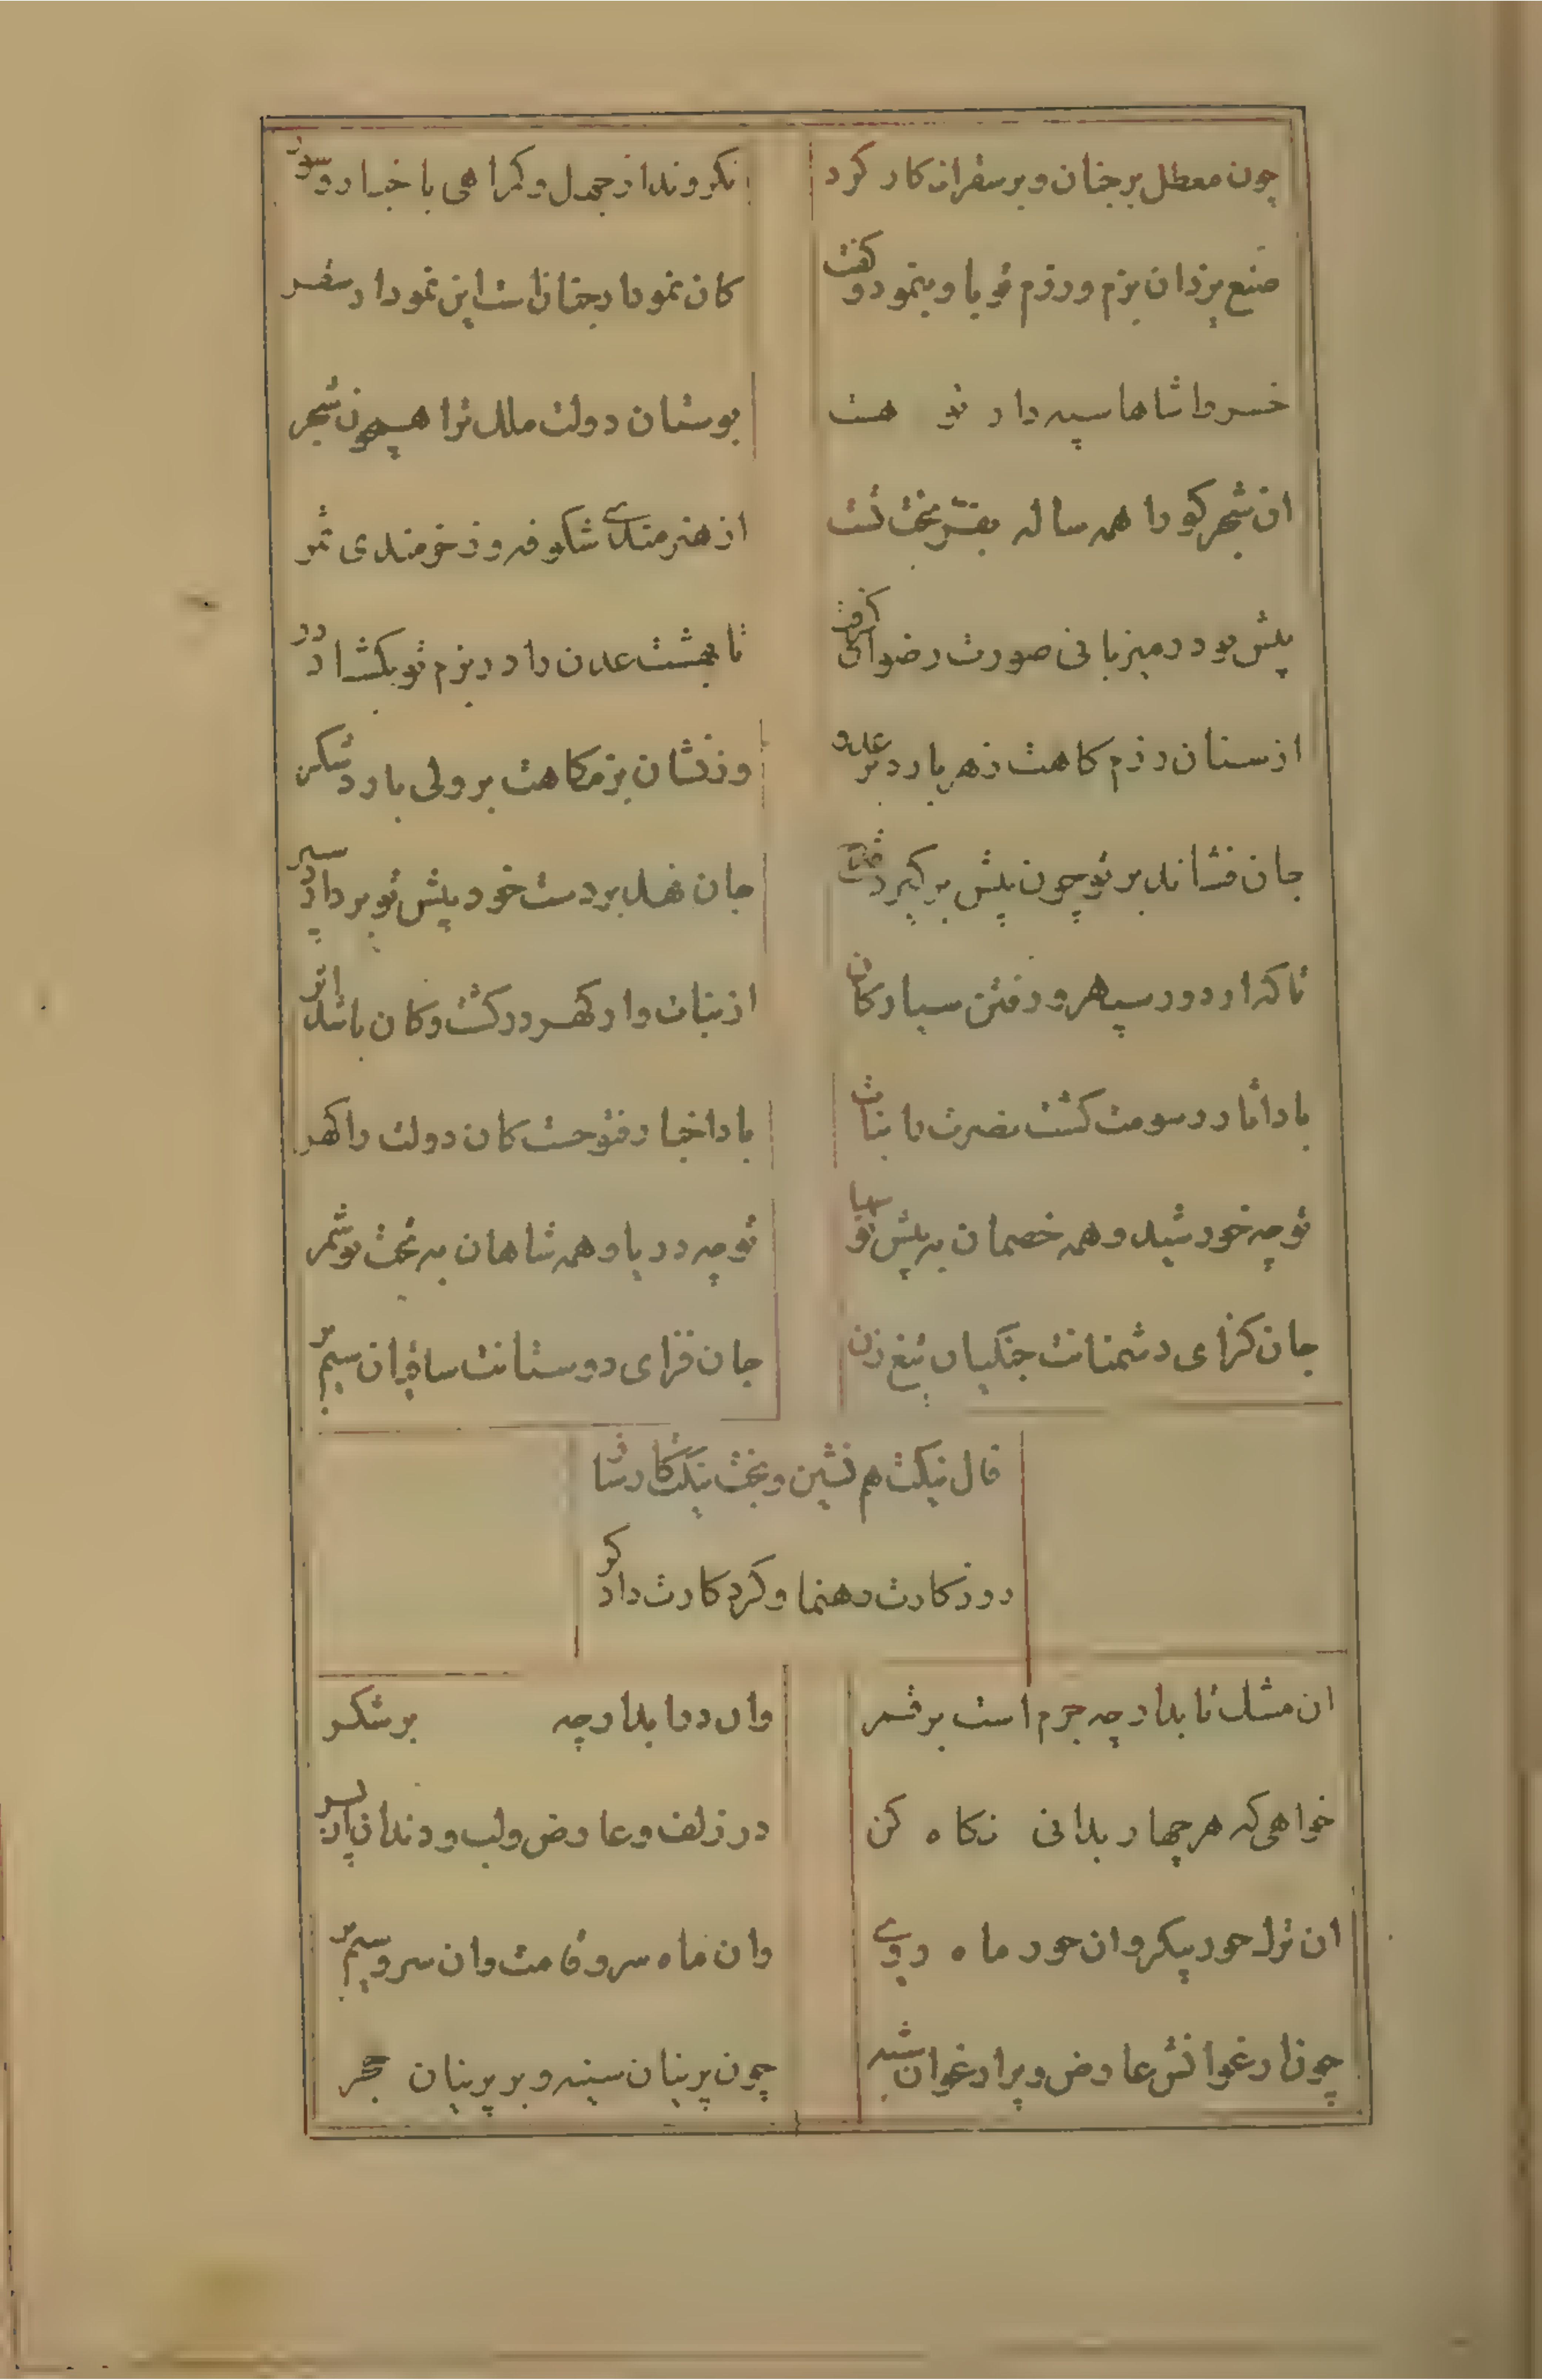 چون معطل بر جنان و بر سقر انکار کرد
نکروند از جهل و کمراهی با خبار و سور
صنع یزدان بزم و رزم تو باو بنمود و کفت
کان نمودار جنانست این نمودار سقر
خسروا شاها سپه دار تو هست
بوستان دولت ملک ترا همچون شجر
ان شجر کورا همه ساله بفر بخت تست
از هنرمندی شکوفه وز خرمندی ثمر
پیش تو در میزبانی صورت رضوان کرفت
تا بهشت عدن را در بزم تو بکشاد در
از سنان رزم کاهت زهر بارد بر عدو
وز نشان بزمکاهت بر ولی بارد شکر
جان فشاند بر تو چون پیش بر کیرد
جان نهد بر دست خود پیش تو بردارد سپر
تا که از دور سپهر و رفتن سیارکان
از نبات و از کهر در کشت و کان باشد اثر
باد اثار رسومت کشت نصرت را نبات
باد اخبار فتوحت کان دولت را کهر
تو چه خورشید و همه خصمان به پیش تو سها
تو چه دریا و همه شاهان به بخت تو شمر
جان کزای دشمنانت جنکیان تیغ زن
جان فزای دوستانت ساقیان سیم بر
فال نیکت هم نشین و بخت نیکت کارشا
روز کارت رهنما و کرد کارت داد کر
ان مشک تابدار چه جرم است بر قمر
وان در ابدار چه بر شکر
خواهی که هر چهار بدانی نکاه کن
در زلف و عارض و لب و دندان ان پسر
ان ترک حور پیکر وان حور ماه روی
وان ماه سرو قامت وان سرو سیم بر
چون ارغوانش عارض و بر ارغوان شبه
چون پرنیان سینه و بر پرنیان حجر